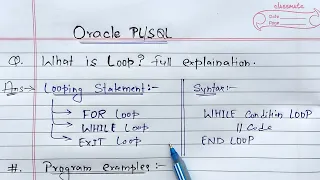 classmate
Date
Page
Oracle PL/SQL
Q. What is Loop? full explaination.
Ans→ Looping Statement:-
FOR Loop
WHILE Loop
EXIT Loop
Syntax:-
WHILE Condition LOOP
// Code
END LOOP
#. Program examples:-